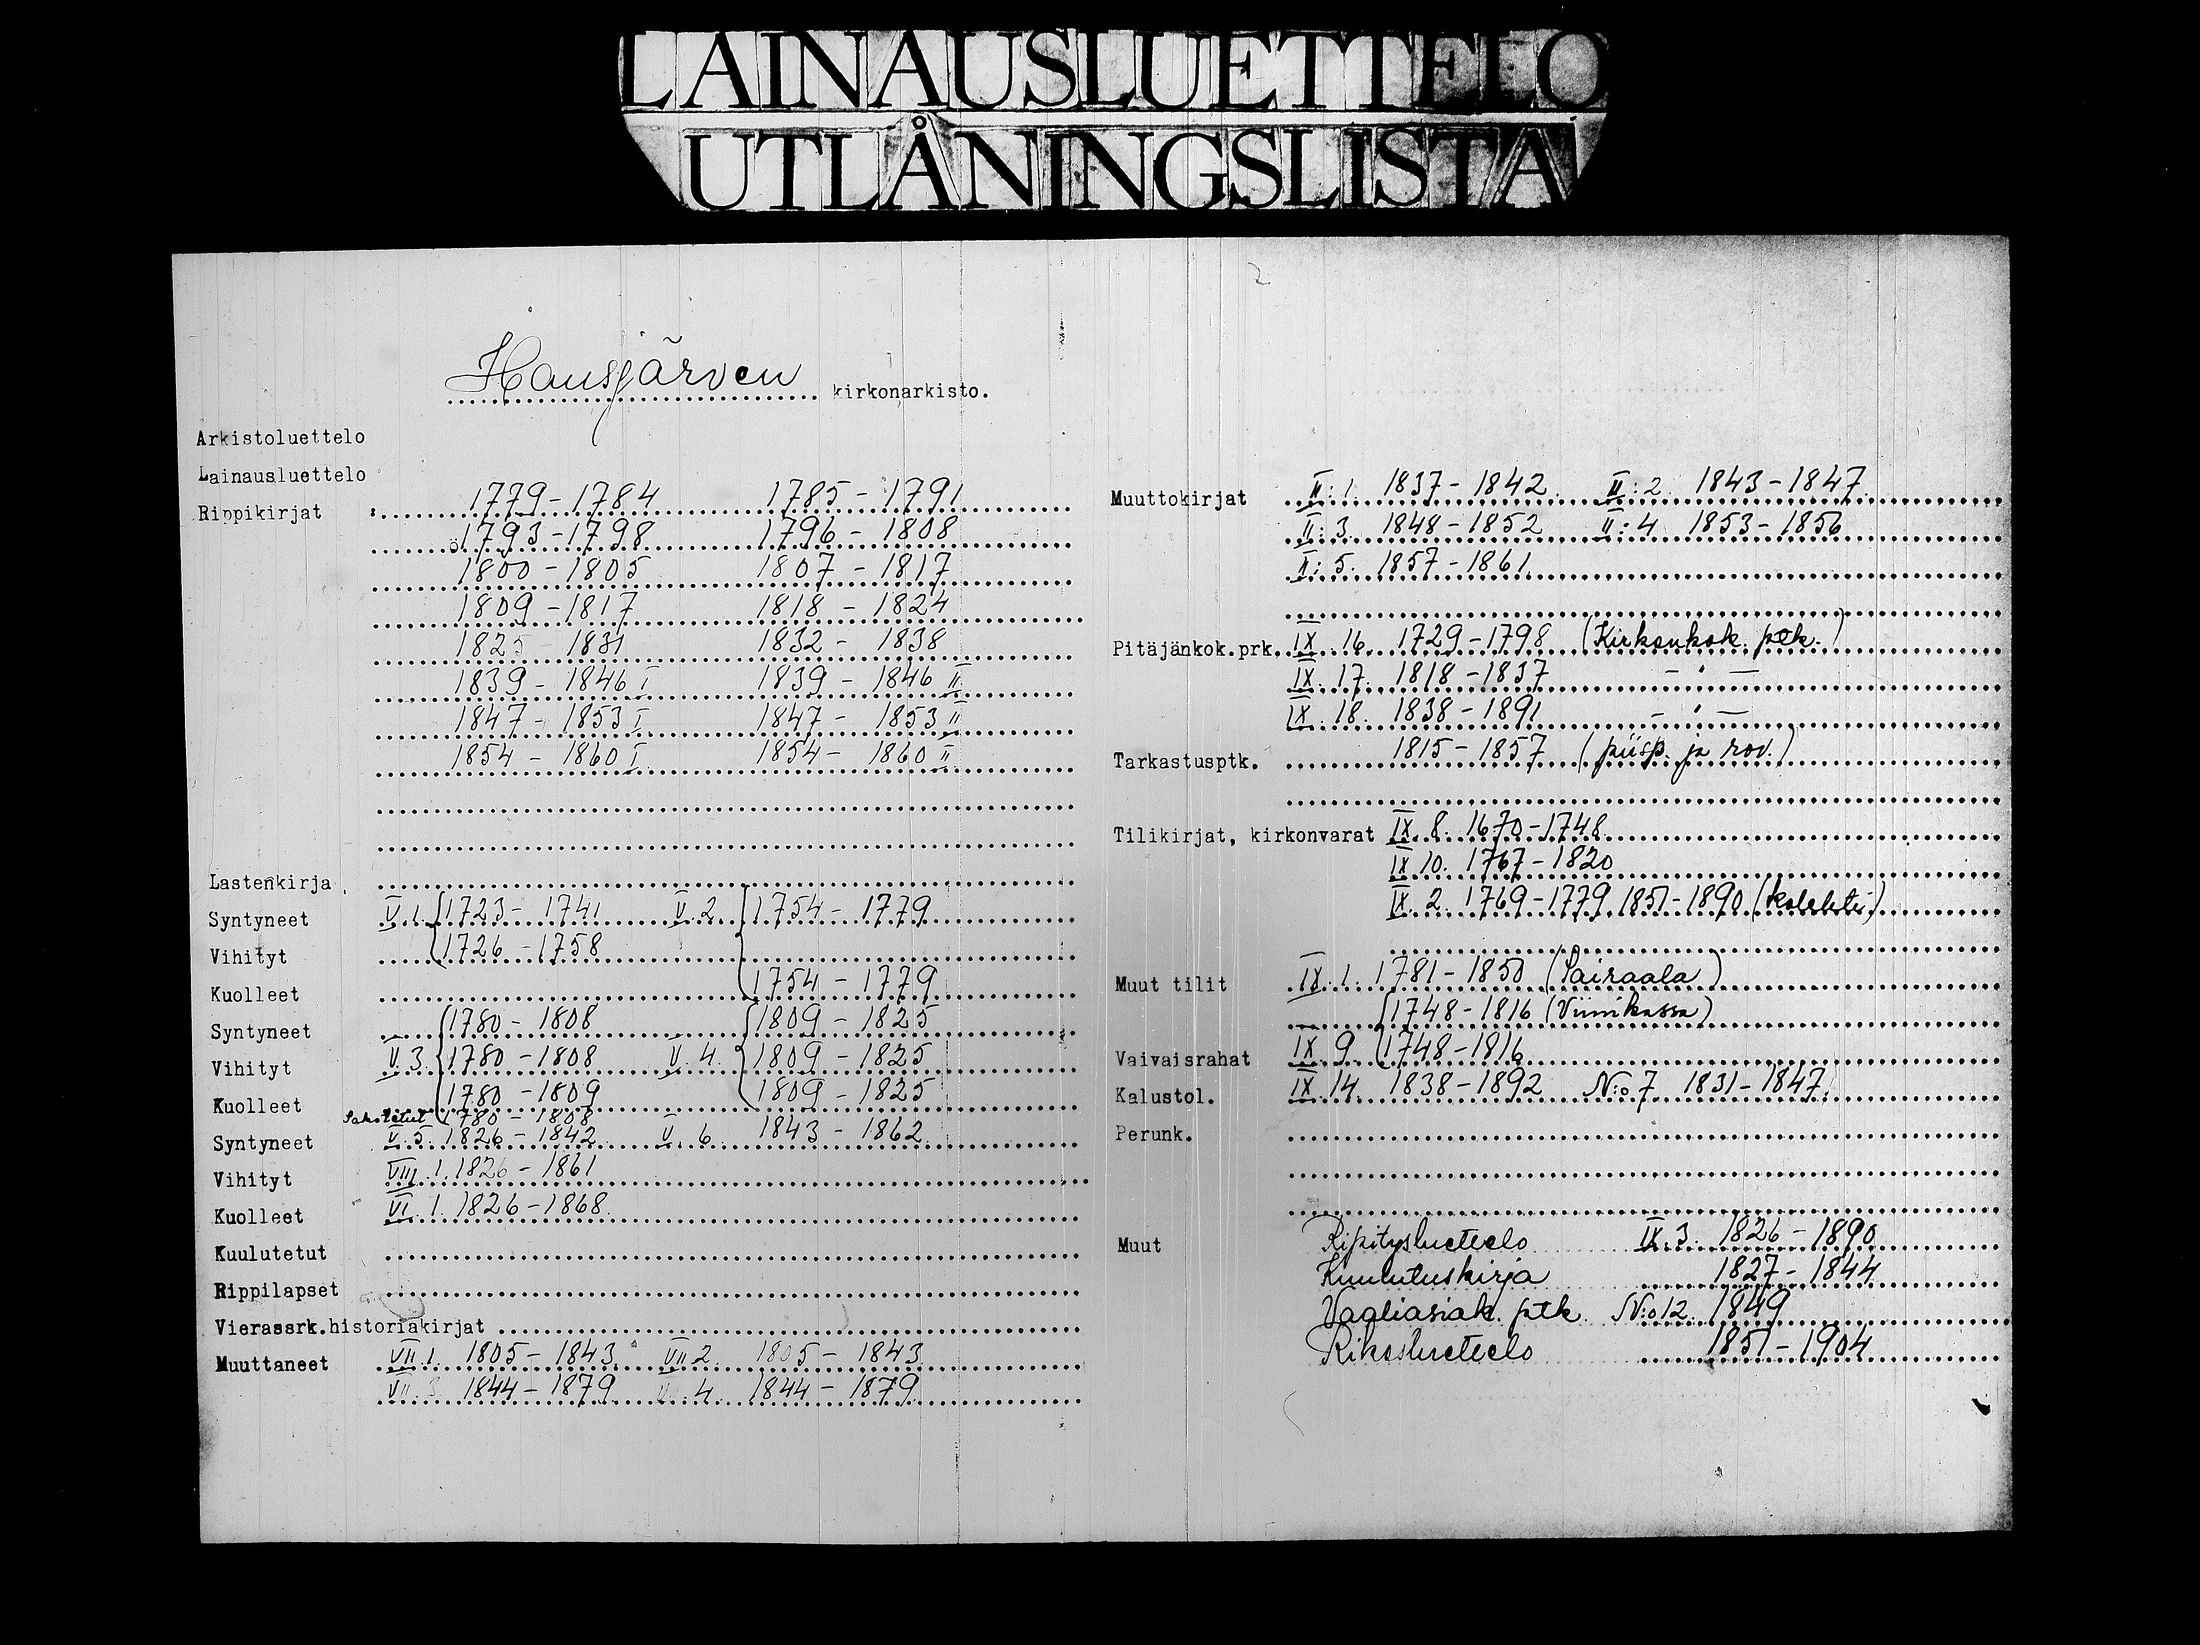 LAINAUSLUETTELO
UTLÅNINGSLISTA
2
Hausjärven kirkonarkisto.
Arkistoluettelo
Lainausluettelo
Rippikirjat : 1779-1784 1785-1791
ö 1793-1798 1796-1808
1800-1805 1807-1817
1809-1817 1818-1824
1825 1831 1832-1838
1839-1846 I 1839-1846 II
1847-1853 I 1847-1853 II
1854-1860 I 1854-1860 II
Lastenkirja
Syntyneet V.1. 1723-1741 V.2 1754-1779
Vihityt 1726-1758
Kuolleet 1754-1779
Syntyneet 1780-1808 1809-1825
Vihityt V.3. 1780-1808 V.4. 1809-1825
Kuolleet 1780-1809 1809-1825
Sakotetut 1780-1808
Syntyneet V.5. 1826-1842 V.6. 1843-1862
Vihityt VIII.1. 1826-1861
Kuolleet VI.1. 1826-1868.
Kuulutetut
Rippilapset
Vierassrk.historiakirjat
Muuttaneet VII.1. 1805-1843. VII.2 1805-1843
VII.3. 1844-1879 4. 1844-1879
Muuttokirjat II:1. 1837-1842 II:2. 1843-1847
II:3. 1848-1852 II:4 1853-1856
II:5. 1857-1861
Pitäjänkok.prk. IX.16. 1729-1798 (Kirkonkok. ptk.)
IX.17. 1818-1837 - " -
IX.18. 1838-1891 - " -
Tarkastusptk. 1815-1857 (piisp. ja rov.)
Tilikirjat, kirkonvarat IX.8. 1670-1748
IX 10. 1767-1820
IX.2. 1769-1779 1851-1890 (kolehti)
Muut tilit IX.1. 1781-1850 (Sairaala)
1748-1816 (Viinikassa)
Vaivaisrahat IX.9. 1748-1816
Kalustol. IX.14. 1838-1892 N:o 7 1831-1847.
Perunk.
Muut Ripitysluettelo IX.3. 1826-1890
Kuulutuskirja 1827-1844
Vaaliasiak. ptk. N:o 12. 1849
Rikosluettelo 1851-1904